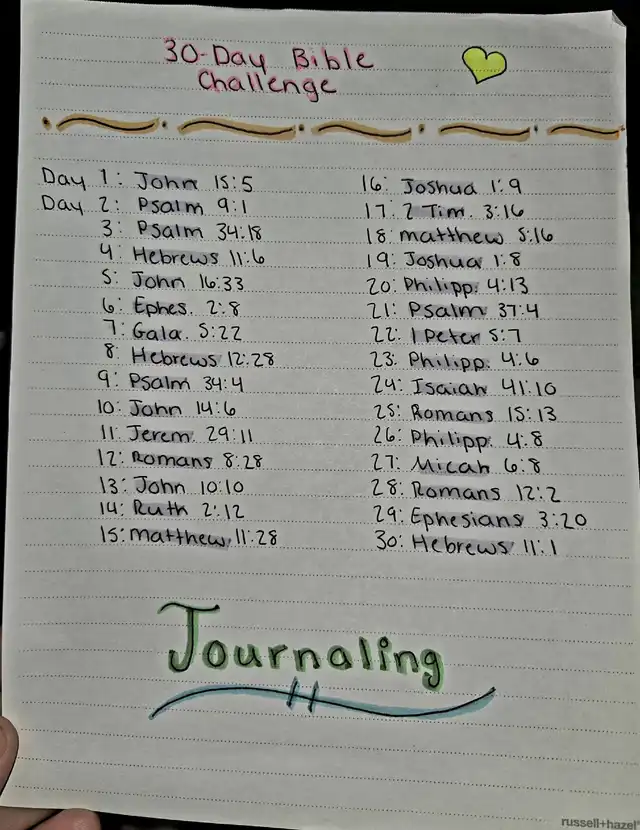 30-Day Bible
Challenge
Day 1: John 15:5
Day 2: Psalm 9:1
3: Psalm 34:18
4: Hebrews 11:6
5: John 16:33
6: Ephes. 2:8
7: Gala. 5:22
8: Hebrews 12:28
9: Psalm 34:4
10: John 14:6
11: Jerem. 29:11
12: Romans 8:28
13: John 10:10
14: Ruth 2:12
15: matthew 11:28
16: Joshua 1:9
17: 2 Tim. 3:16
18: matthew 5:16
19: Joshua 1:8
20: Philipp. 4:13
21: Psalm 37:4
22: 1 Peter 5:7
23: Philipp. 4:6
24: Isaiah 41:10
25: Romans 15:13
26: Philipp. 4:8
27: Micah 6:8
28: Romans 12:2
29: Ephesians 3:20
30: Hebrews 11:1
Journaling
russell+hazel